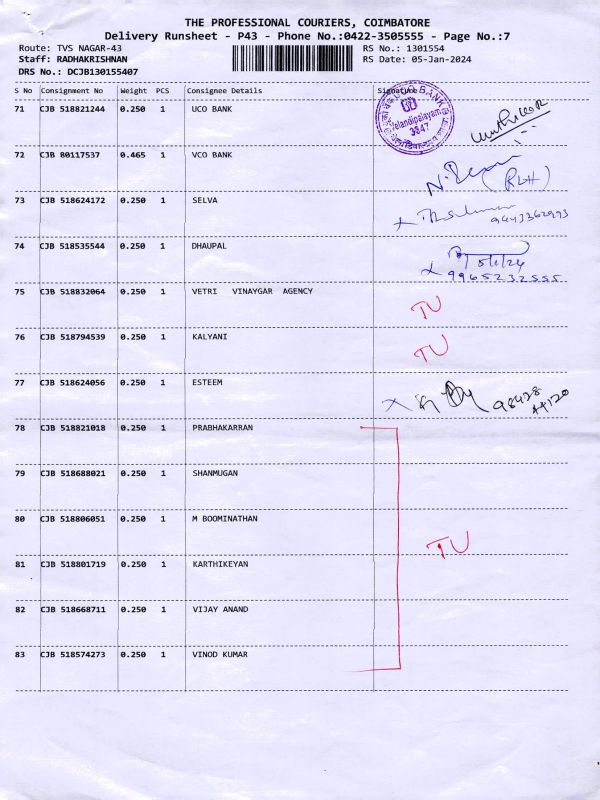 THE PROFESSIONAL COURIERS, COIMBATORE
Delivery Runsheet - P43 - Phone No.:0422-3505555 - Page No.:7
Route: TVS NAGAR-43 RS No.: 1301554
Staff: RADHAKRISHNAN RS Date: 05-Jan-2024
DRS No.: DCJB130155407
S No Consignment No Weight PCS Consignee Details Signature
71 CJB 518821244 0.250 1 UCO BANK
BANK
Velandipalayam
3847
72 CJB 80117537 0.465 1 VCO BANK
(RLH)
73 CJB 518624172 0.250 1 SELVA
9443362993
74 CJB 518535544 0.250 1 DHAUPAL
5/1/24
9965232555
75 CJB 518832064 0.250 1 VETRI VINAYGAR AGENCY TU
76 CJB 518794539 0.250 1 KALYANI TU
77 CJB 518624056 0.250 1 ESTEEM
98428
44120
78 CJB 518821018 0.250 1 PRABHAKARRAN
79 CJB 518688021 0.250 1 SHANMUGAN
80 CJB 518806051 0.250 1 M BOOMINATHAN
TU
81 CJB 518801719 0.250 1 KARTHIKEYAN
82 CJB 518668711 0.250 1 VIJAY ANAND
83 CJB 518574273 0.250 1 VINOD KUMAR